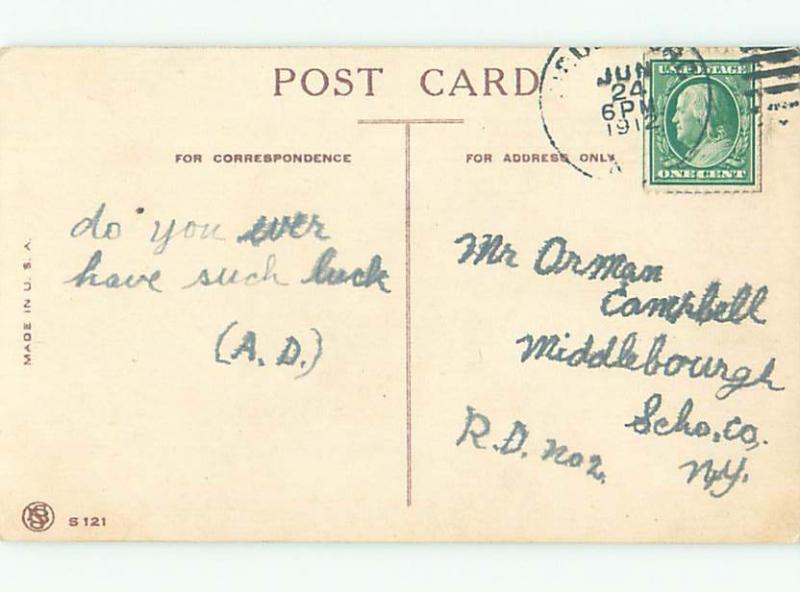 POST CARD
JUN
24
6 PM
1912
U.S. POSTAGE
ONE CENT
FOR CORRESPONDENCE
FOR ADDRESS ONLY
do you ever
have such luck
(A. D.)
Mr Orman
Campbell
Middlebourgh
Scho. co.
N.Y.
R.D. no 2.
MADE IN U. S. A.
S 121